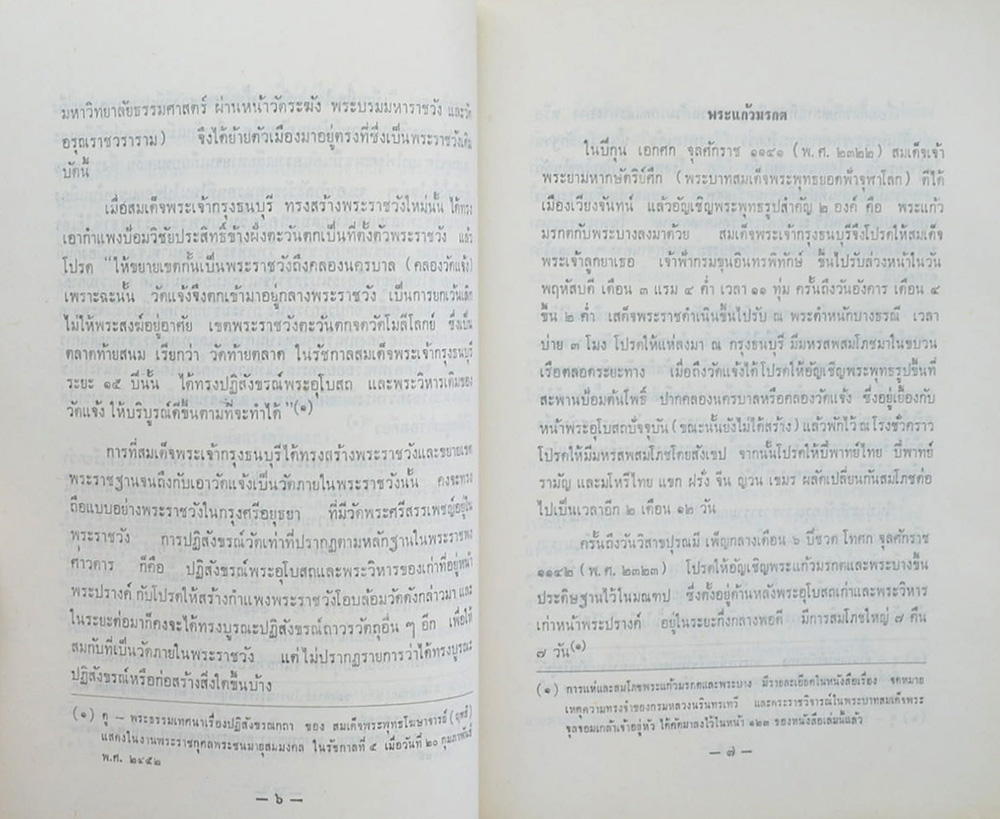 มหาวิทยาลัยธรรมศาสตร์ ผ่านหน้าวัดระฆัง พระบรมมหาราชวัง และวัด
อรุณราชวราราม) จึงได้ย้ายตัวเมืองมาอยู่ตรงที่ซึ่งเป็นพระราชวังเดิม
บัดนี้
เมื่อสมเด็จพระเจ้ากรุงธนบุรี ทรงสร้างพระราชวังใหม่นั้น ได้ทรง
เอากำแพงป้อมวิชัยประสิทธิ์ข้างฝั่งตะวันตกเป็นที่ตั้งตัวพระราชวัง แล้ว
โปรด "ให้ขยายเขตกั้นเป็นพระราชวังถึงคลองนครบาล (คลองวัดแจ้ง)
เพราะฉะนั้น วัดแจ้งจึงตกเข้ามาอยู่กลางพระราชวัง เป็นการยกเว้นเลิก
ไม่ให้พระสงฆ์อยู่อาศัย เขตพระราชวังตะวันตกจดวัดโมลีโลกย์ ซึ่งเป็น
ตลาดท้ายสนม เรียกว่า วัดท้ายตลาด ในรัชกาลสมเด็จพระเจ้ากรุงธนบุรี
ระยะ ๑๕ ปีนั้น ได้ทรงปฏิสังขรณ์พระอุโบสถ และพระวิหารเดิมของ
วัดแจ้ง ให้บริบูรณ์ดีขึ้นตามที่จะทำได้"(๑)
การที่สมเด็จพระเจ้ากรุงธนบุรีได้ทรงสร้างพระราชวังและขยายเขต
พระราชฐานจนถึงกับเอาวัดแจ้งเป็นวัดภายในพระราชวังนั้น คงจะทรง
ถือแบบอย่างพระราชวังในกรุงศรีอยุธยา ที่มีวัดพระศรีสรรเพชญ์อยู่ใน
พระราชวัง การปฏิสังขรณ์วัดเท่าที่ปรากฏตามหลักฐานในพระราชพง
ศาวดาร ก็คือ ปฏิสังขรณ์พระอุโบสถและพระวิหารของเก่าที่อยู่หน้า
พระปรางค์ กับโปรดให้สร้างกำแพงพระราชวังโอบล้อมวัดดังกล่าวมา และ
ในระยะต่อมาก็คงจะได้ทรงบูรณะปฏิสังขรณ์ถาวรวัตถุอื่น ๆ อีก เพื่อให้
สมกับที่เป็นวัดภายในพระราชวัง แต่ไม่ปรากฏรายการว่าได้ทรงบูรณะ
ปฏิสังขรณ์หรือก่อสร้างสิ่งใดขึ้นบ้าง
(๑) ดู – พระธรรมเทศนาเรื่องปฏิสังขรณกถา ของ สมเด็จพระพุทธโฆษาจารย์ (ฤทธิ์)
แสดงในงานพระราชกุศลพระชนมายุสมมงคล ในรัชกาลที่ ๕ เมื่อวันที่ ๒๐ กุมภาพันธ์
พ.ศ. ๒๔๕๒
— ๖ —
พระแก้วมรกต
ในปีกุน เอกศก จุลศักราช ๑๑๔๑ (พ.ศ. ๒๓๒๒) สมเด็จเจ้า
พระยามหากษัตริย์ศึก (พระบาทสมเด็จพระพุทธยอดฟ้าจุฬาโลก) ตีได้
เมืองเวียงจันทน์ แล้วอัญเชิญพระพุทธรูปสำคัญ ๒ องค์ คือ พระแก้ว
มรกตกับพระบางลงมาด้วย สมเด็จพระเจ้ากรุงธนบุรีจึงโปรดให้สมเด็จ
พระเจ้าลูกยาเธอ เจ้าฟ้ากรมขุนอินทรพิทักษ์ ขึ้นไปรับล่วงหน้าในวัน
พฤหัสบดี เดือน ๓ แรม ๔ ค่ำ เวลา ๑๑ ทุ่ม ครั้นถึงวันอังคาร เดือน ๔
ขึ้น ๒ ค่ำ เสด็จพระราชดำเนินขึ้นไปรับ ณ พระตำหนักบางธรณี เวลา
บ่าย ๓ โมง โปรดให้แห่ลงมา ณ กรุงธนบุรี มีมหรสพสมโภชมาในขบวน
เรือตลอดระยะทาง เมื่อถึงวัดแจ้งได้โปรดให้อัญเชิญพระพุทธรูปขึ้นที่
สะพานป้อมต้นโพธิ์ ปากคลองนครบาลหรือคลองวัดแจ้ง ซึ่งอยู่เยื้องกับ
หน้าพระอุโบสถปัจจุบัน (ขณะนั้นยังไม่ได้สร้าง) แล้วพักไว้ ณ โรงชั่วคราว
โปรดให้มีมหรสพสมโภชโดยสังเขป จากนั้นโปรดให้ปี่พาทย์ไทย ปี่พาทย์
รามัญ และมโหรีไทย แขก ฝรั่ง จีน ญวน เขมร ผลัดเปลี่ยนกันสมโภชต่อ
ไปเป็นเวลาอีก ๒ เดือน ๑๒ วัน
ครั้นถึงวันวิสาขปุรณมี เพ็ญกลางเดือน ๖ ปีชวด โทศก จุลศักราช
๑๑๔๒ (พ.ศ. ๒๓๒๓) โปรดให้อัญเชิญพระแก้วมรกตและพระบางขึ้น
ประดิษฐานไว้ในมณฑป ซึ่งตั้งอยู่ด้านหลังพระอุโบสถเก่าและพระวิหาร
เก่าหน้าพระปรางค์ อยู่ในระยะกึ่งกลางพอดี มีการสมโภชใหญ่ ๗ คืน
๗ วัน(๑)
(๑) การแห่และสมโภชพระแก้วมรกตและพระบาง มีรายละเอียดในหนังสือเรื่อง จดหมาย
เหตุความทรงจำของกรมหลวงนรินทรเทวี และพระราชวิจารณ์ในพระบาทสมเด็จพระ
จุลจอมเกล้าเจ้าอยู่หัว ได้คัดมาลงไว้ในหน้า ๑๒๓ ของหนังสือเล่มนี้แล้ว
— ๗ —